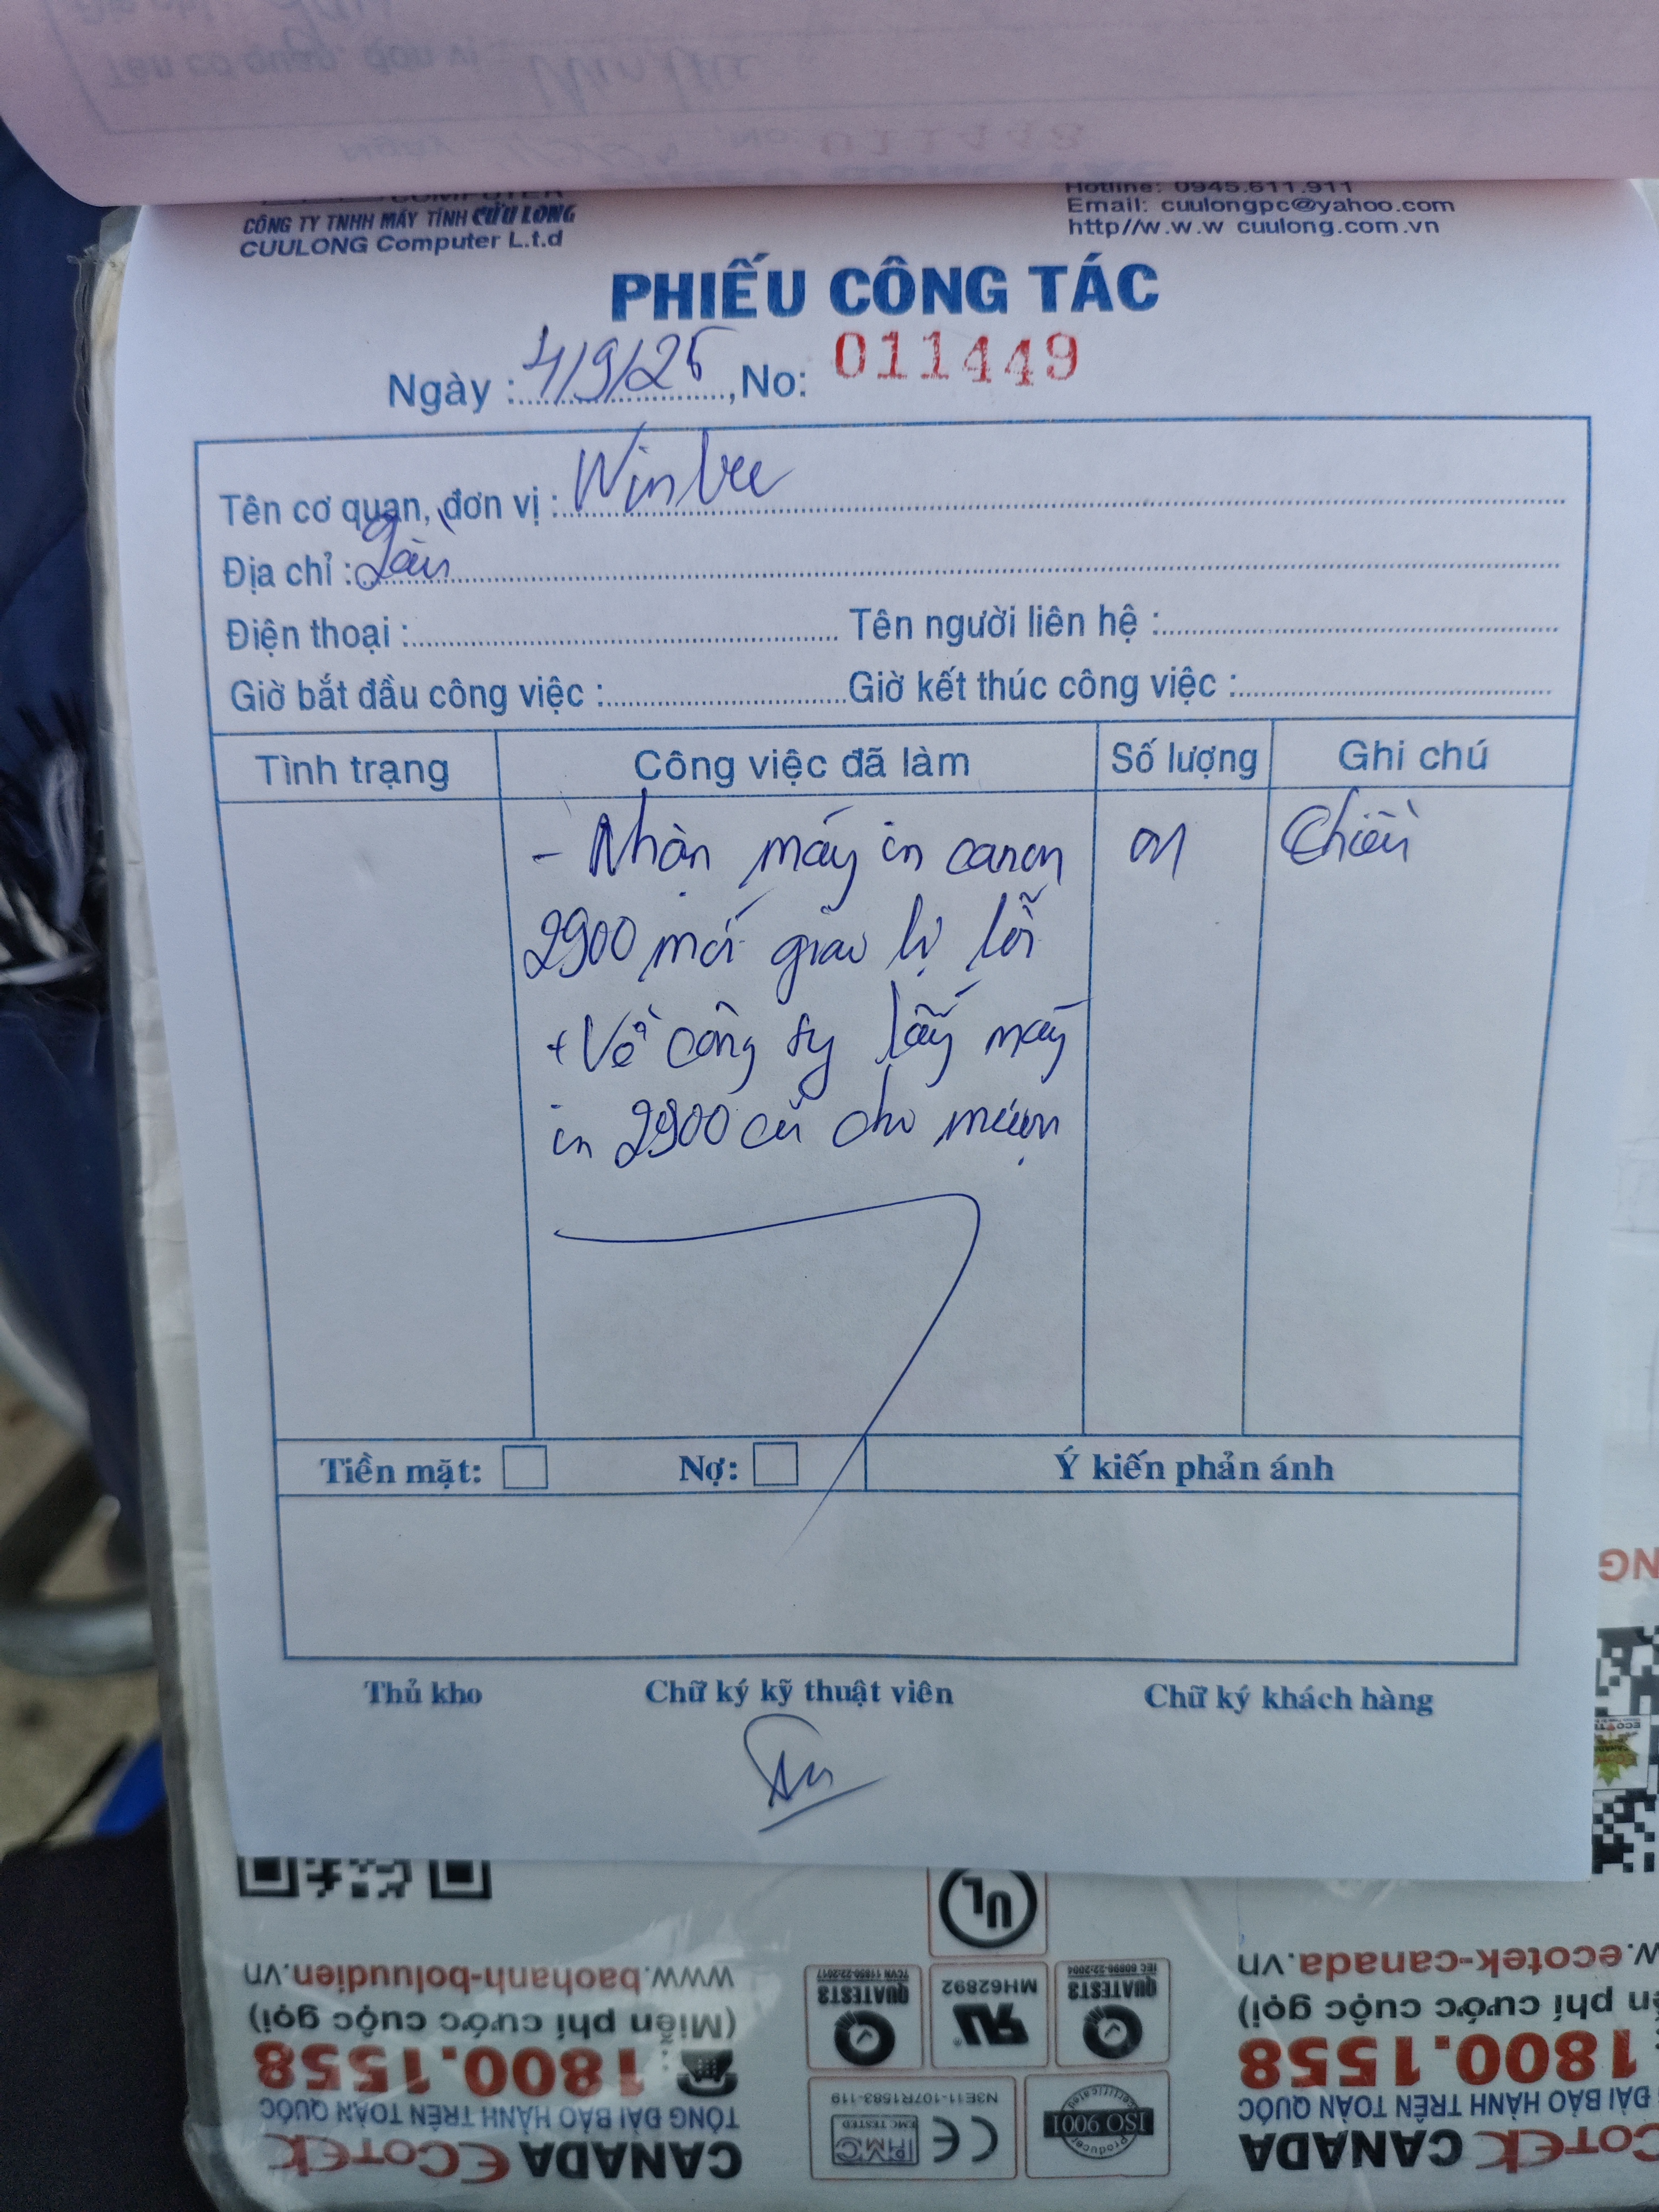 CÔNG TY TNHH MÁY TÍNH CỬU LONG
CUULONG Computer L.t.d
Hotline: 0945.611.911
Email: cuulongpc@yahoo.com
http//w.w.w cuulong.com.vn
PHIẾU CÔNG TÁC
Ngày : 4/9/25, No: 011449
Tên cơ quan, đơn vị :
Địa chỉ : Gần
Điện thoại : Tên người liên hệ :
Giờ bắt đầu công việc : Giờ kết thúc công việc :
Tình trạng Công việc đã làm Số lượng Ghi chú
- Nhận máy in canon 01 Chiều
2900 mới giao bị lỗi
+ Về công ty lấy máy
in 2900 cũ cho mượn
Tiền mặt: Nợ: Ý kiến phản ánh
Thủ kho Chữ ký kỹ thuật viên Chữ ký khách hàng
UL
www.baohanh-boluudien.vn
(Miễn phí cước cuộc gọi)
1800.1558
TỔNG ĐÀI BẢO HÀNH TRÊN TOÀN QUỐC
CANADA ECOTEK
QUATEST3
TCVN 11850-22:2017
MH62892
QUATEST3
IEC 60896-22:2004
N3E11-107R1583-119
EMC TESTED
CE
ISO 9001
w.ecotek-canada.vn
phí cước cuộc gọi)
1800.1558
ĐÀI BẢO HÀNH TRÊN TOÀN QUỐC
COTEK CANADA